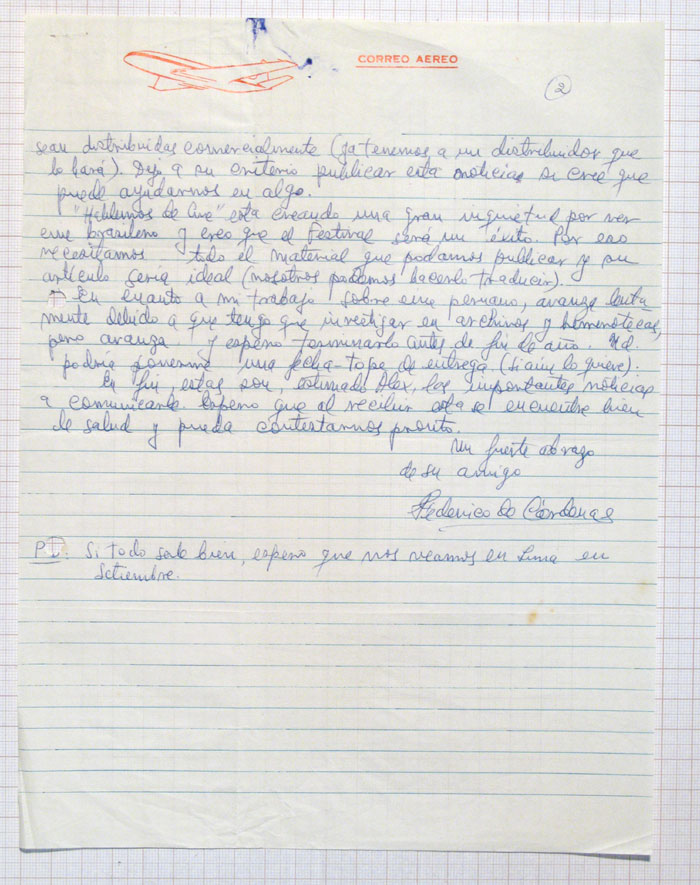 CORREO AEREO
2
sean distribuidas comercialmente (ya tenemos a un distribuidor que
lo hará). Dejo a su criterio publicar esta noticia si cree que
puede ayudarnos en algo.
"Hablemos de Cine" esta creando una gran inquietud por ver
cine brasileno y creo que el Festival será un éxito. Por eso
necesitamos todo el material que podamos publicar y su
artículo sería ideal (nosotros podemos hacerlo traducir).
En cuanto a mi trabajo sobre cine peruano, avanza lenta-
mente debido a que tengo que investigar en archivos y hemerotecas,
pero avanza y espero terminarlo antes de fin de año. Ud
podría ponerme una fecha-tope de entrega (si aún lo quiere).
En fin, estas son, estimado Alex, las importantes noticias
a comunicarle. Espero que al recibir esta se encuentre bien
de salud y pueda contestarnos pronto.
Un fuerte abrazo
de su amigo
Federico de Cárdenas
P.D. Si todo sale bien, espero que nos veamos en Lima en
Setiembre.